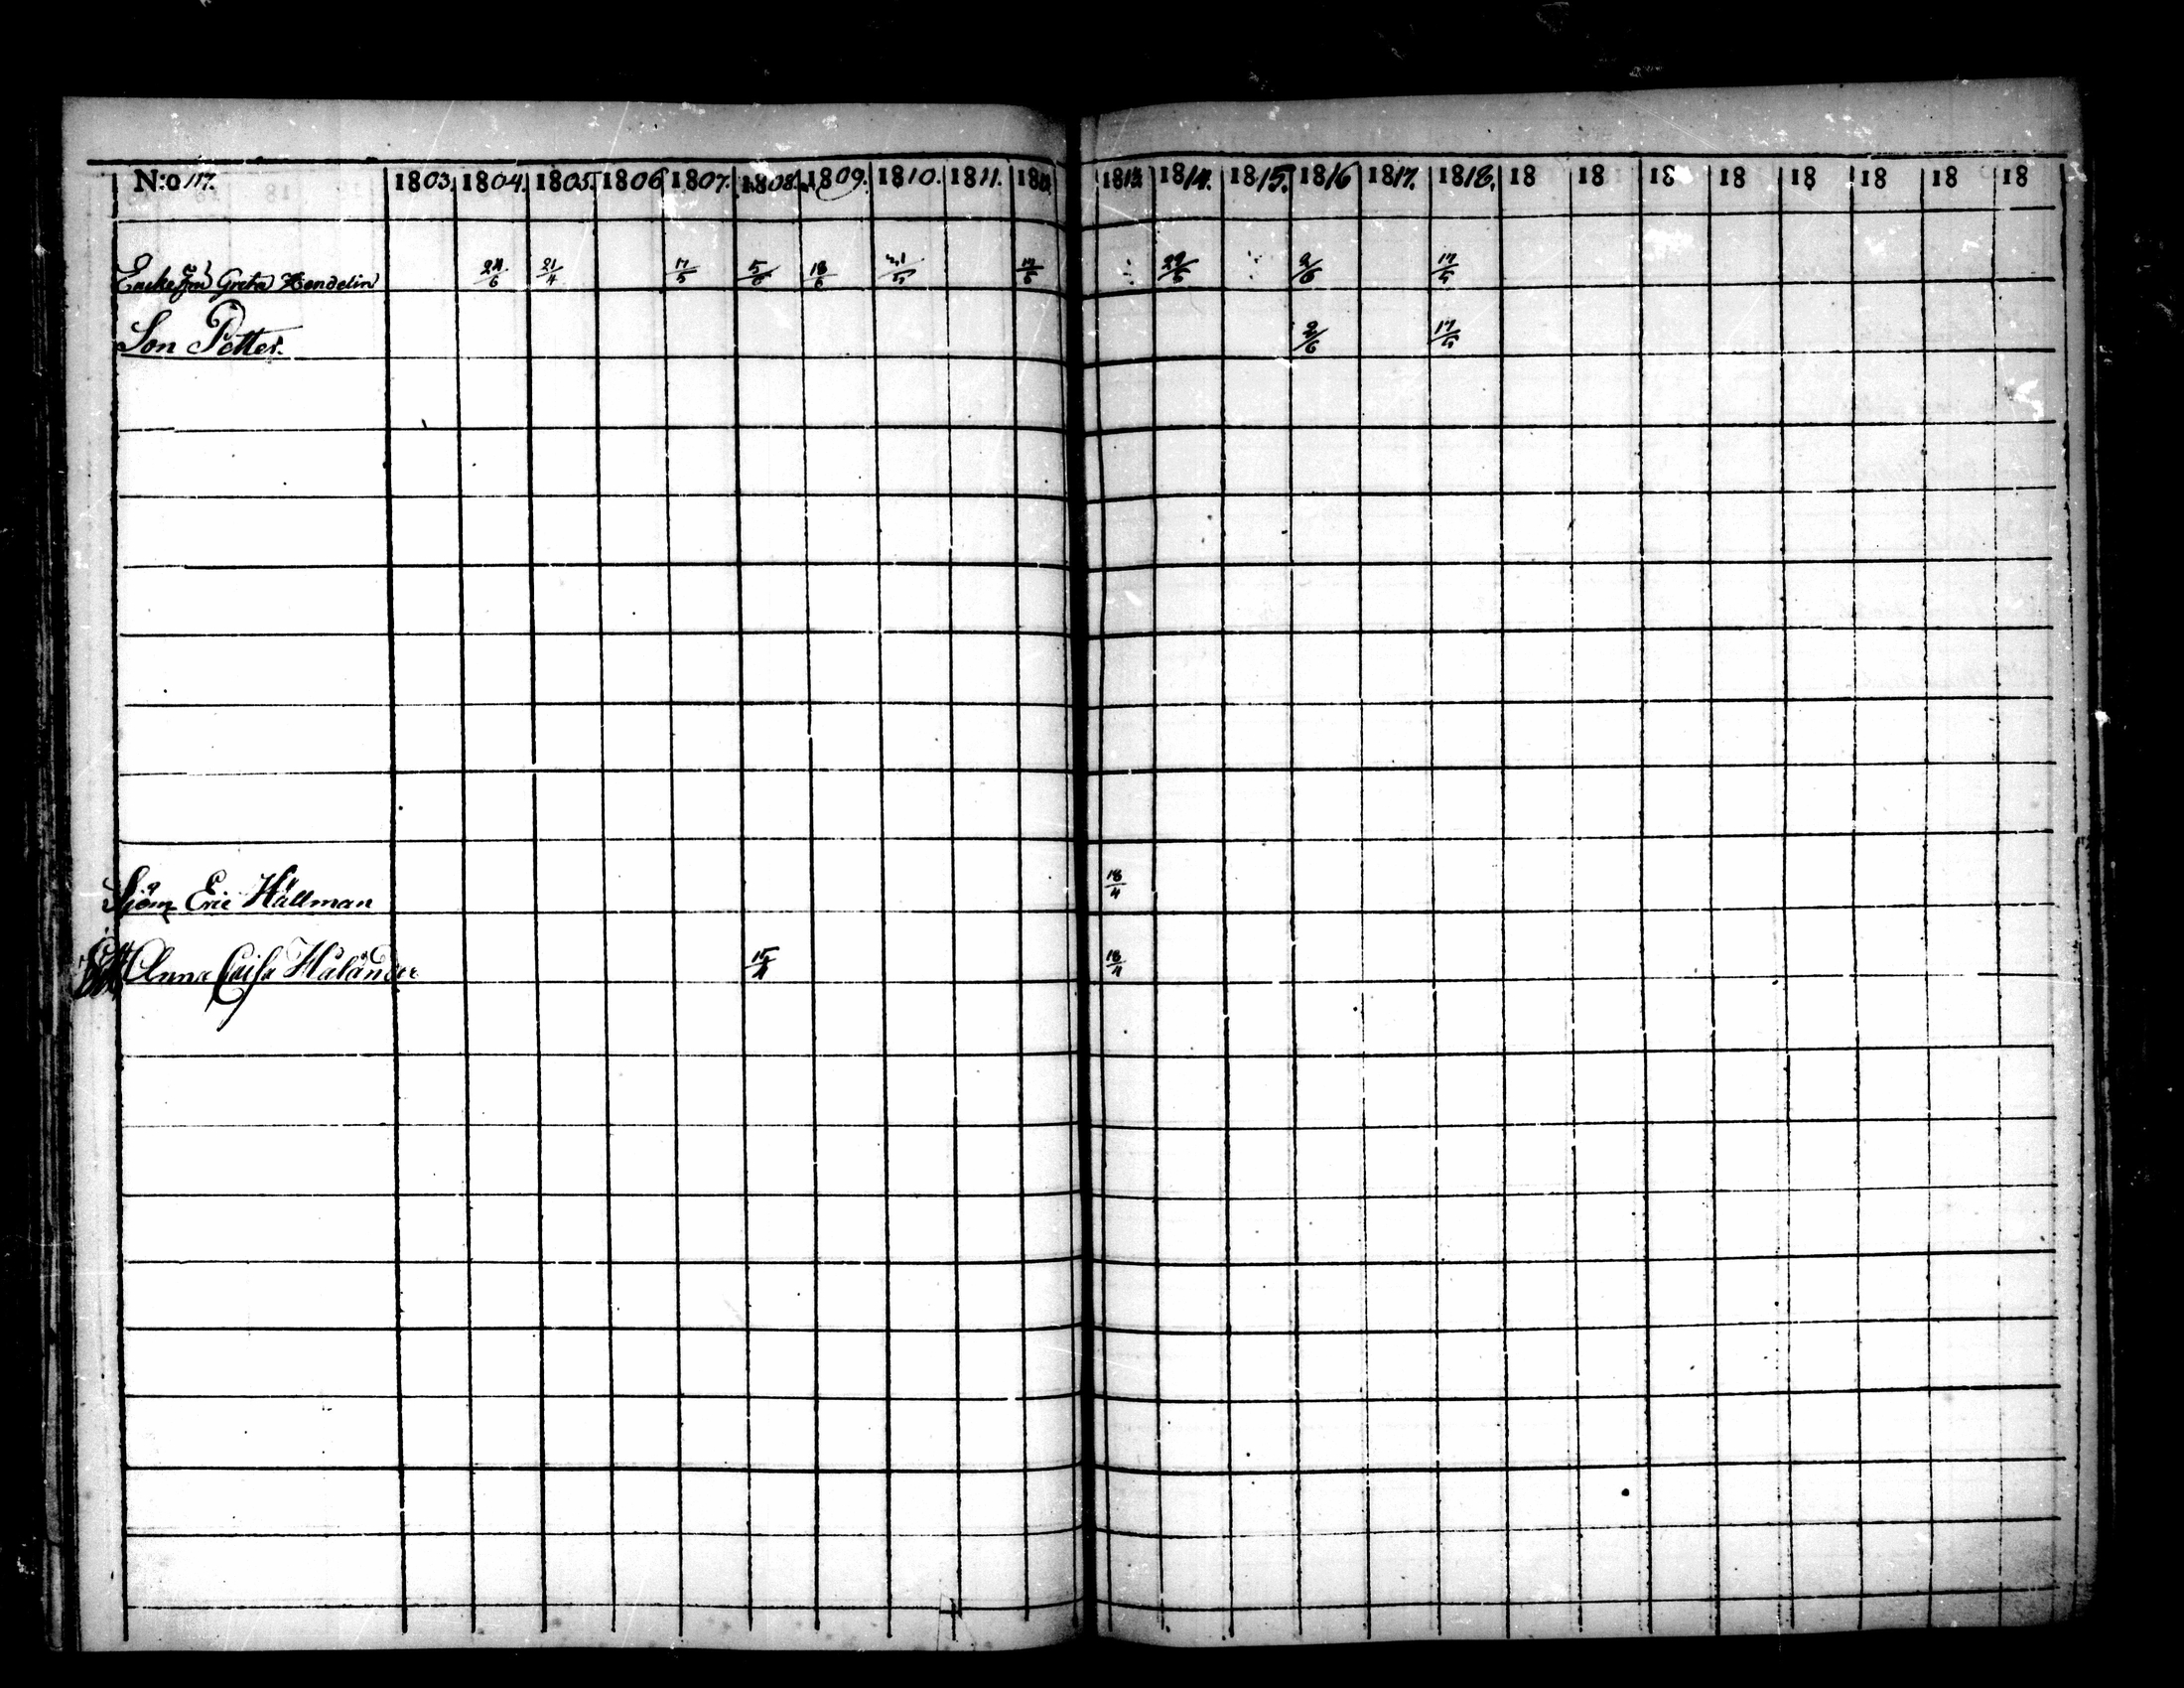 N:o 117. 1803. 1804. 1805. 1806 1807. 1808. 1809. 1810. 1811. 1812. 1813 1814. 1815. 1816 1817. 1818. 18 18 18 18 18 18 18 18
Greta 24/6 21/4 17/5 5/6 18/6 21/5 17/5 29/5 2/6 17/5
Son Petter. 2/6 17/5
Sjöm Eric Hällman 18/4
Anna Caisa Halander 15/4 18/4